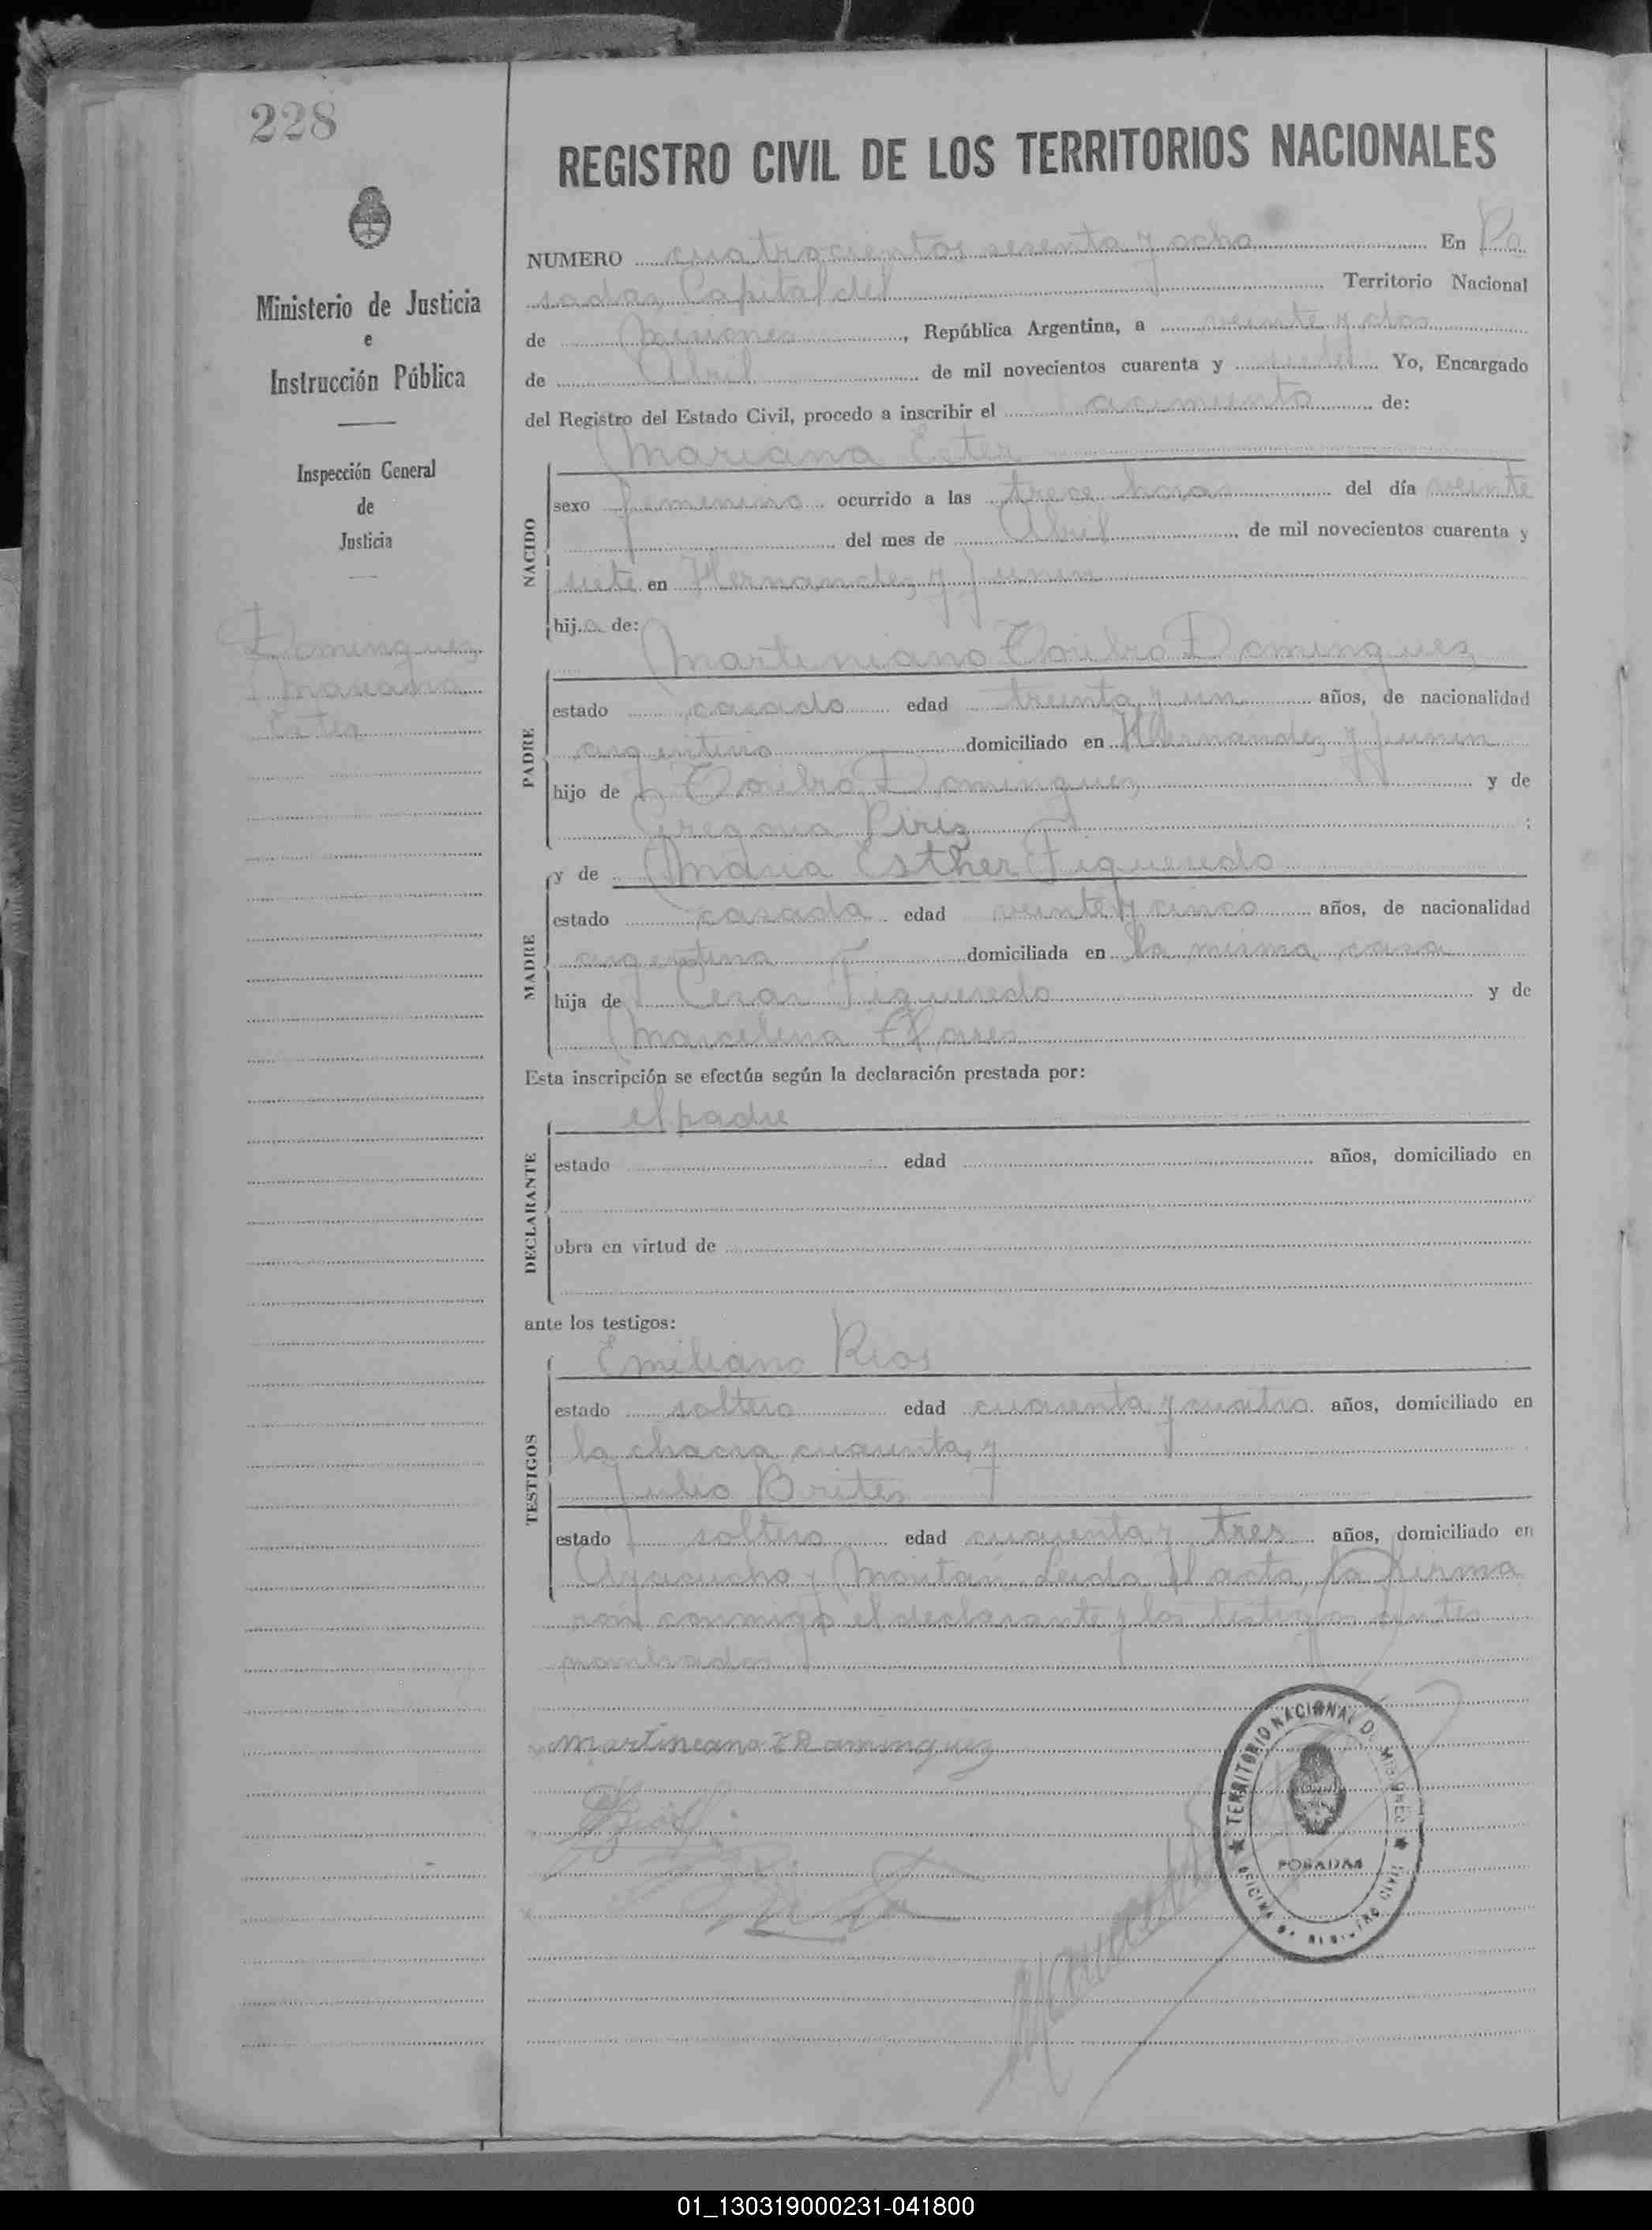 228
REGISTRO CIVIL DE LOS TERRITORIOS NACIONALES
Ministerio de Justicia
e
Instrucción Pública
Inspección General
de
Justicia
Dominguez
Mariana
Ester
NUMERO cuatrocientos sesenta y ocho En Po
sadas, Capital del Territorio Nacional
de Misiones, República Argentina, a veinte y dos
de Abril de mil novecientos cuarenta y siete Yo, Encargado
del Registro del Estado Civil, procedo a inscribir el acimiento de:
Mariana Ester
NACIDO
sexo femenino ocurrido a las trece horas del día veinte
del mes de Abril de mil novecientos cuarenta y
siete en Hernandez y Junin
hija de:
Martiniano Toribio Dominguez
PADRE
estado casado edad treinta y un años, de nacionalidad
argentino domiciliado en Hernandez y Junin
hijo de Toribio Dominguez y de
Gregoria Piriz;
y de Maria Esther Figueredo
MADRE
estado casada edad veinte y cinco años, de nacionalidad
argentina domiciliada en la misma casa
hija de Cesar Figueredo y de
Marcelina Flores
Esta inscripción se efectúa según la declaración prestada por:
el padre
DECLARANTE
estado edad años, domiciliado en
obra en virtud de
ante los testigos:
Emiliano Rios
TESTIGOS
estado soltero edad cuarenta y cuatro años, domiciliado en
la chacra cuarenta, y
Julio Brites
estado soltero edad cuarenta y tres años, domiciliado en
Ayacucho y Leida el acta, la firma
ron conmigo el declarante y los testigos antes
nombrados
Martineano T Dominguez
TERRITORIO NACIONAL DE MISIONES
POSADAS
OFICINA DE REGISTRO CIVIL
01_130319000231-041800